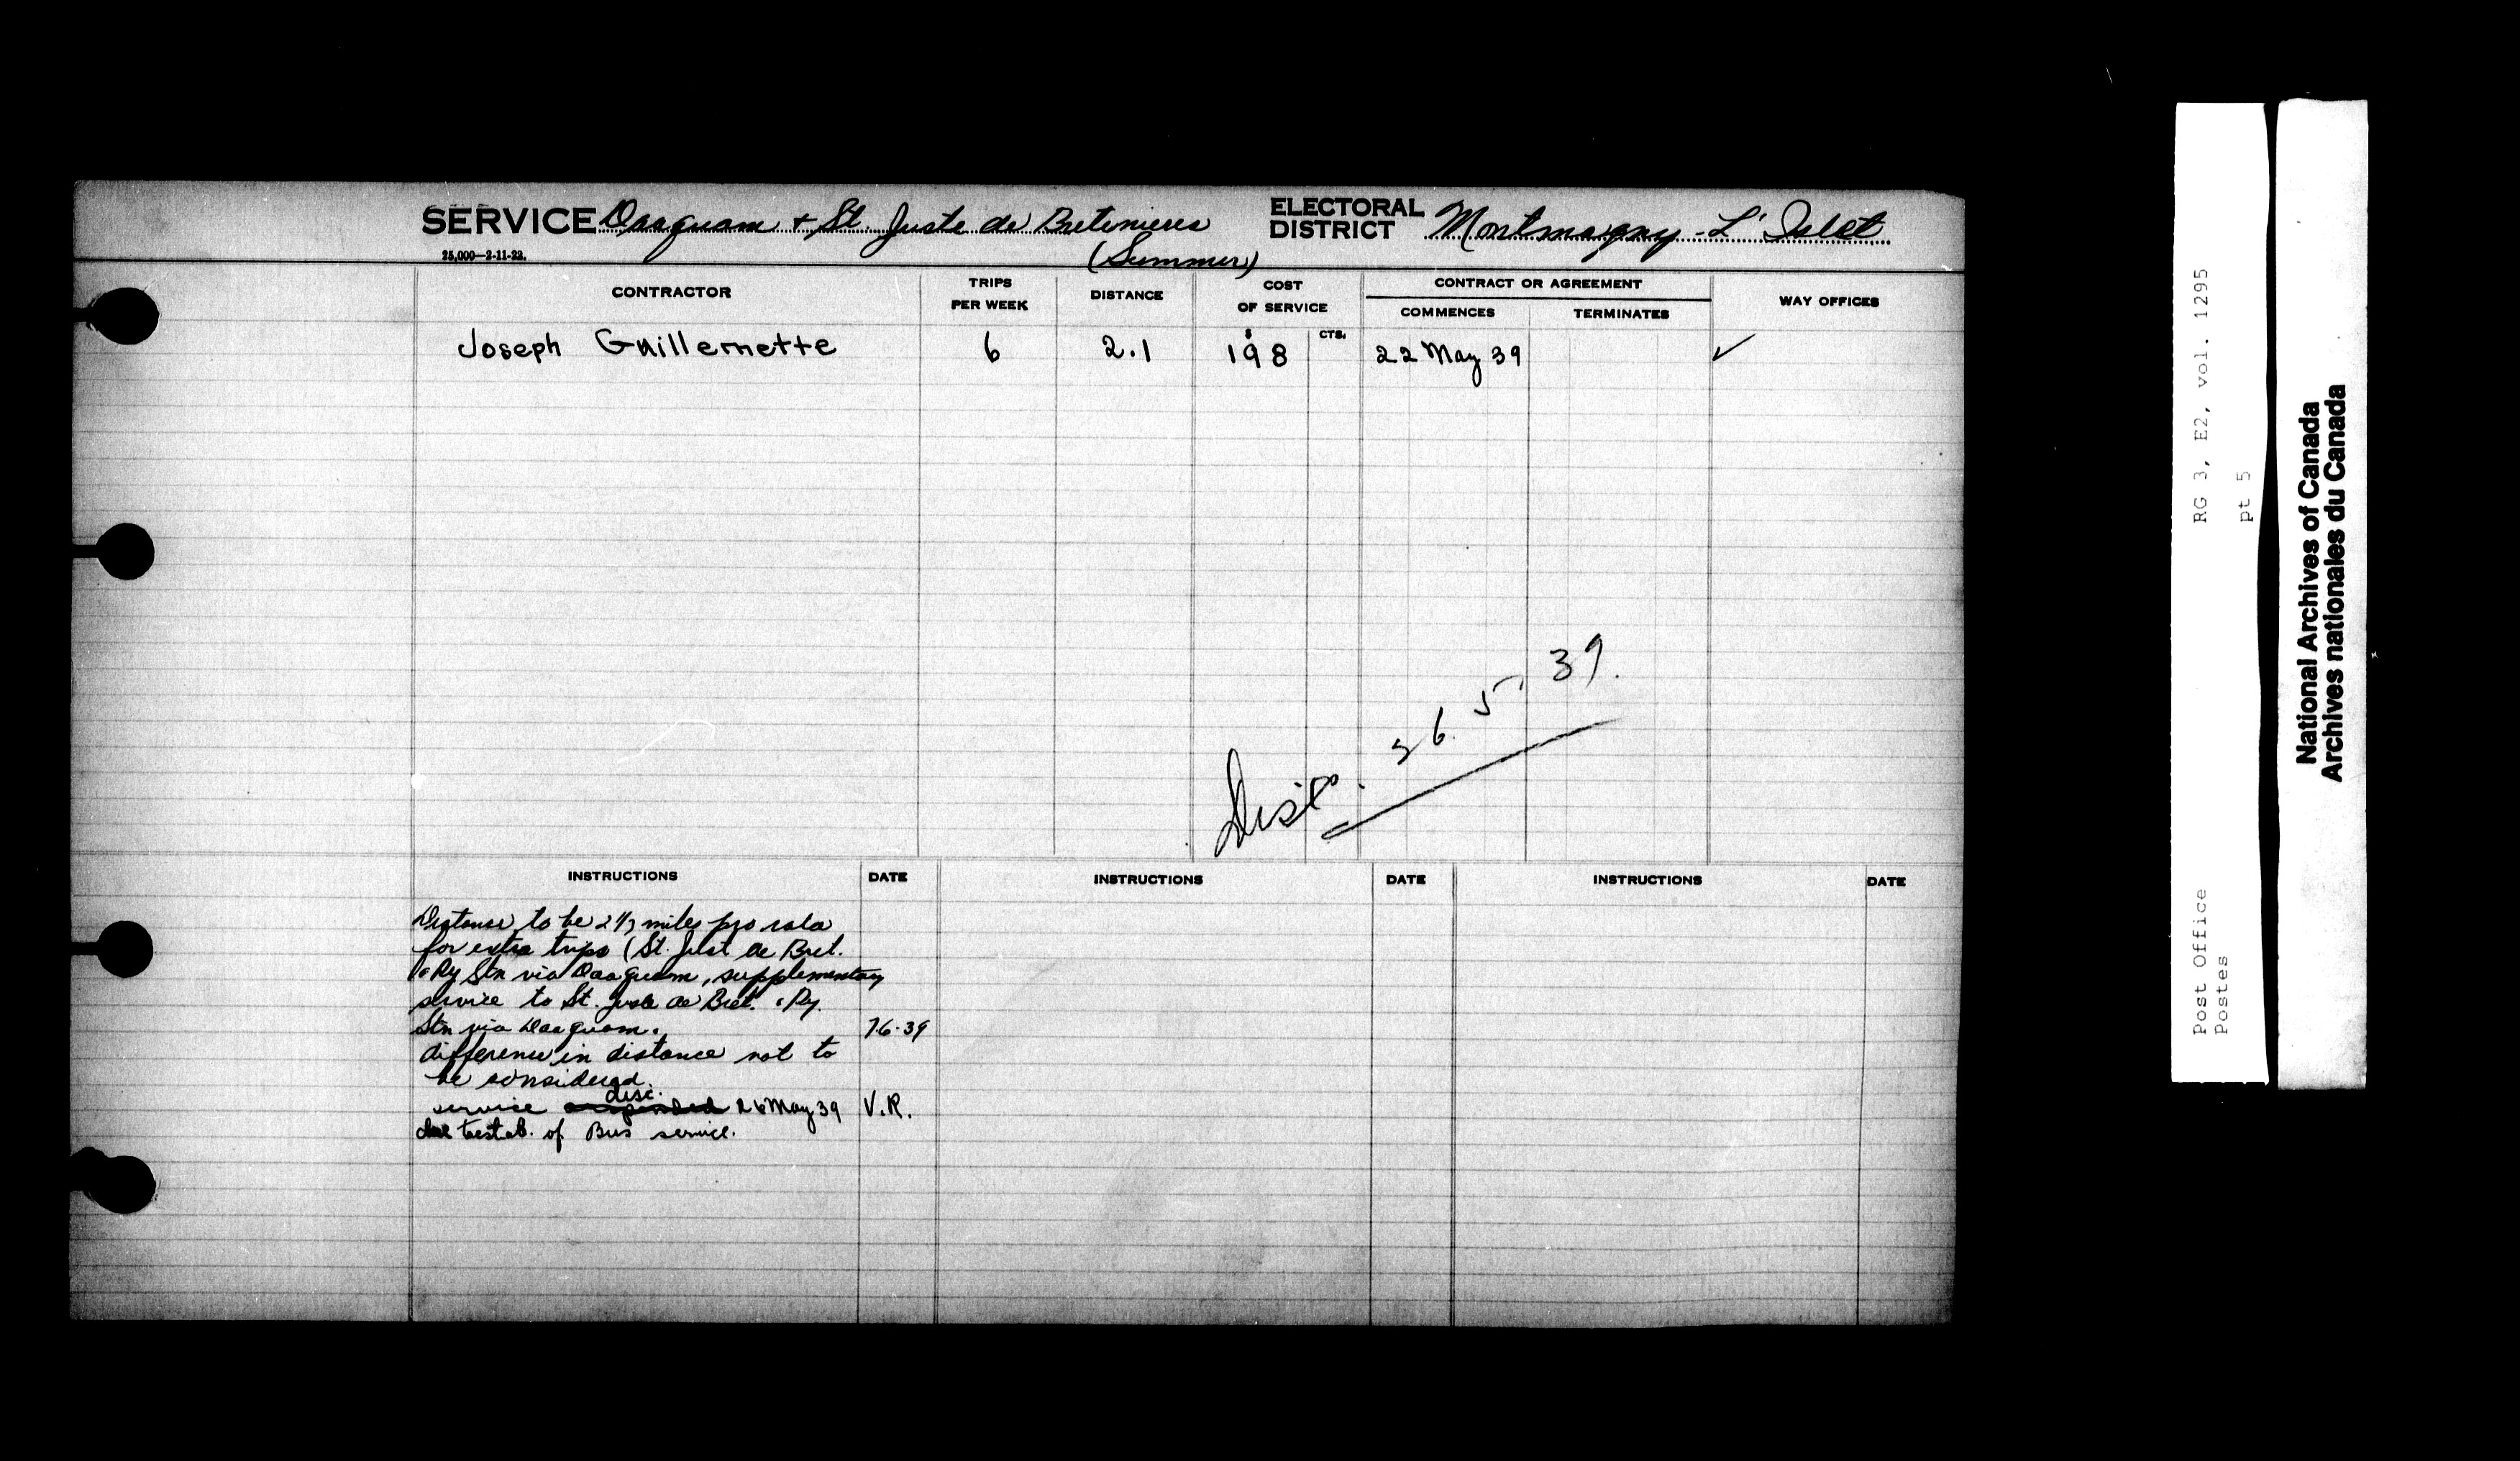 SERVICE Daaquam & St. Juste de Bretenieres
(Summer)
ELECTORAL DISTRICT Montmagny - L'Islet
25,000—2-11-23.
CONTRACTOR
TRIPS PER WEEK
DISTANCE
COST OF SERVICE
CONTRACT OR AGREEMENT
COMMENCES
TERMINATES
WAY OFFICES
$ CTS.
Joseph Guillemette 6 2.1 198 22 May 39 ✓
Disc. 26. 5. 39.
INSTRUCTIONS DATE INSTRUCTIONS DATE INSTRUCTIONS DATE
Distance to be 2 1/2 miles pro rata
for extra trips (St. Just de Bret.
& Ry Stn via Daaquam, supplementary
service to St. Juste de Bret. & Ry.
Stn via Daaquam. 7.6.39
difference in distance not to
be considered.
service suspended disc. 26 May 39 V.R.
due to estab. of Bus service.
RG 3, E2, vol. 1295
pt 5
Post Office
Postes
National Archives of Canada
Archives nationales du Canada